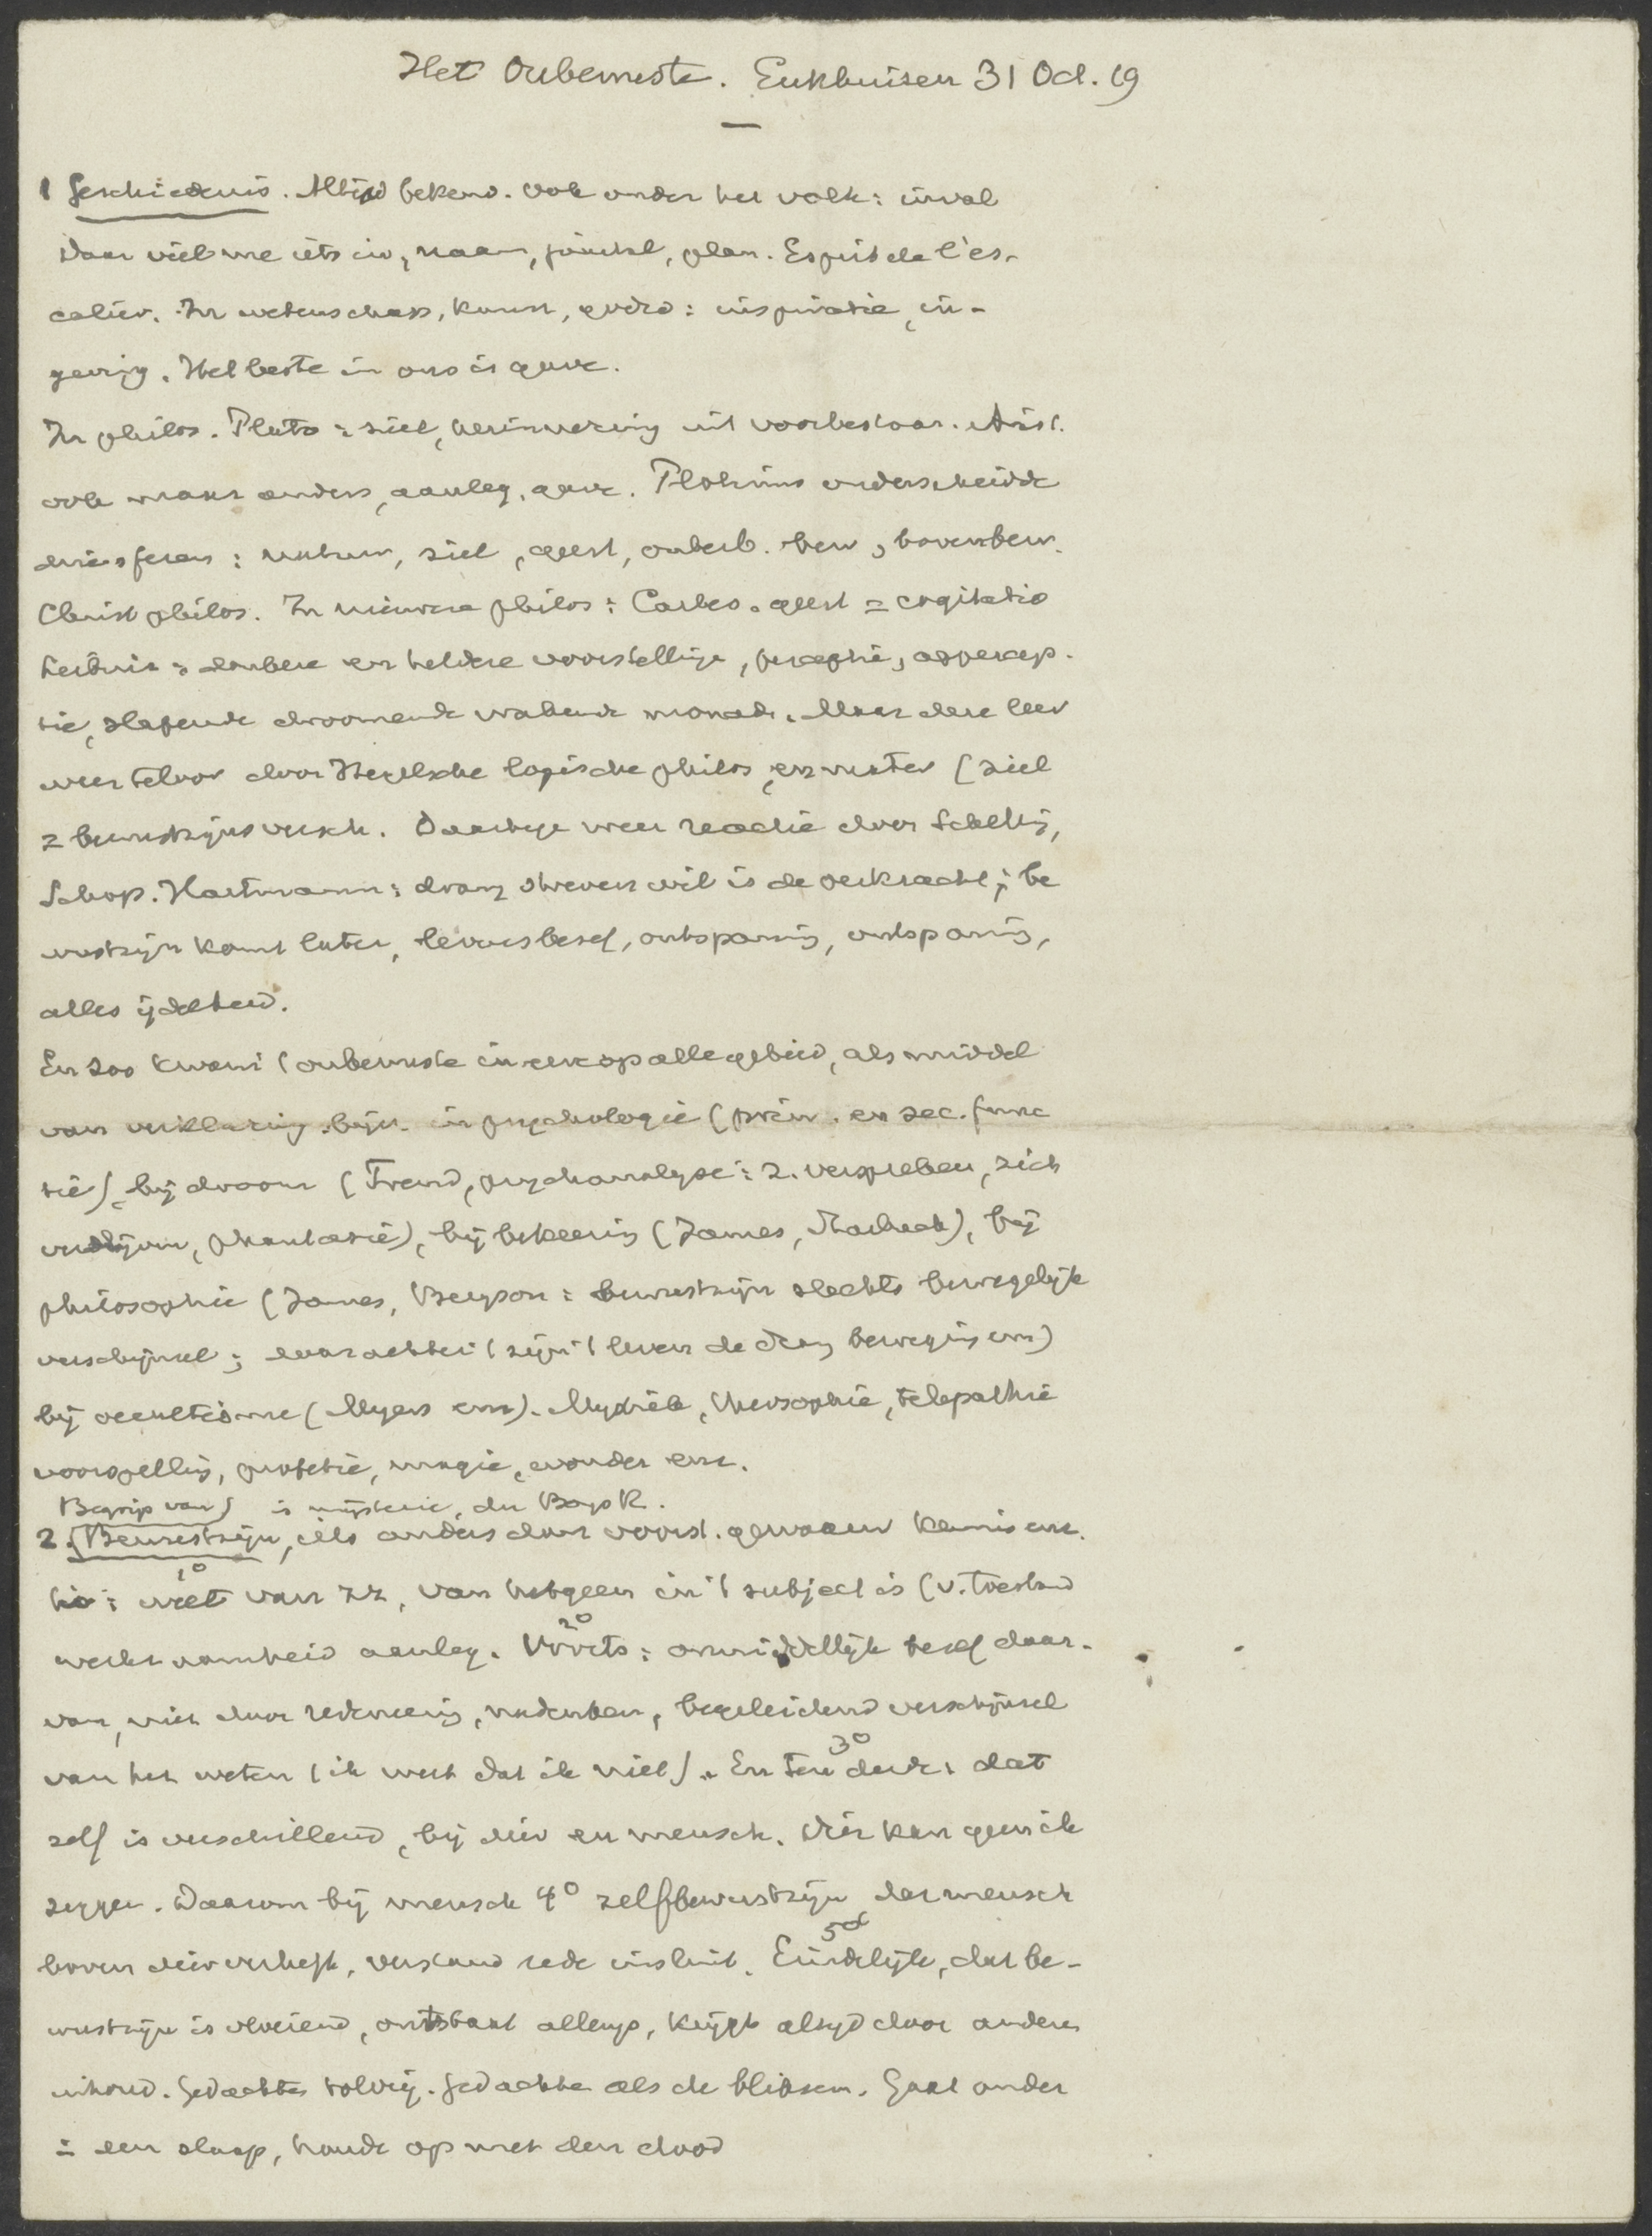 Het Onbewuste. Enkhuisen 31 Oct. 19
1 Geschiedenis. Altijd bekend. ook onder het volk: inval
Daar viel me iets in, naam, plan. Esprit de l'es-
calier. In wetenschap, kunst, godsd: inspiratie, in-
geving. Het beste in ons is gave.
In philos. Plato: ziel, herinnering uit voorbestaan. Arist.
ook maar anders, aanleg, gave. Plotinus onderscheidde
drie sferen: natuur, ziel, geest, onderb. bew, bovenbew.
Christ philos. In nieuwere philos: Cartes. geest = cogitatio
Leibniz: donkere en heldere voorstellinge, perceptie, appercep-
tie, slapende droomende wakende monade. Maar deze leer
weer teloor door Hegelsche logische philos, en (ziel
= bewustzijnsversch. Daartege weer reactie door Schelling,
Schop. Hartmann: drang streven wil is de oerkracht; be
wustzijn komt later, levensbesef, ontspanning,
alles ijdelheid.
En zoo kwam 't onbewuste in eere op alle gebied, als middel
van verklaring bijv. in psychologie (prim. en sec. func
tie), bij droom (Freud, psychanalyse: z. verspreken, zich
phantasie), bij bekeering (James, Starbuck), bij
philosophie (James, Bergson: bewustzijn slechts bewegelijk
verschijnsel; daarachter 't zijn 't leven de drang beweging enz)
bij occultisme (Myers enz). Mystiek, theosophie, telepathie
voorspelling, profetie, magie, wonder enz.
Begrip van) is mysterie, du Bois R.
2. (Bewustzijn, iets anders dan voorst. gewaarw kennis enz.
1° weet van zz, van hetgeen in 't subject is (v. toestand
werkzaamheid aanleg. 2° Voorts: onmiddellijk besef daar-
van, niet door redeneering, nadenken, begeleidend verschijnsel
van het weten (ik weet dat ik niet). 3° En ten derde: dat
zelf is verschillend, bij dier en mensch. Dier kan geen ik
zeggen. Daarom bij mensch 4° zelfbewustzijn dat mensch
boven dier verheft, verstand rede insluit. 5° Eindelijk, dat be-
wustzijn is vloeiend, ontstaat allengs, krijgt altijd door anderen
inhoud. Gedachte als de bliksem. Gaat onder
in den slaap, houdt op met den dood